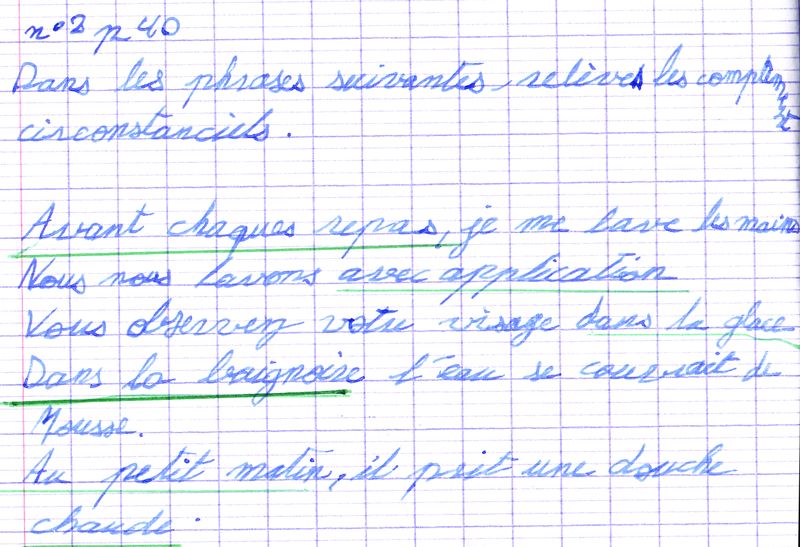 n°3 p 40
Dans les phrases suivantes, relèves les complément
circonstanciels.
Avant chaques repas, je me lave les mains
Nous nous lavons avec application
Vous observez votre visage dans la glace
Dans la baignoire l'eau se couvrait de
Mousse.
Au petit matin, il prit une douche
chaude.